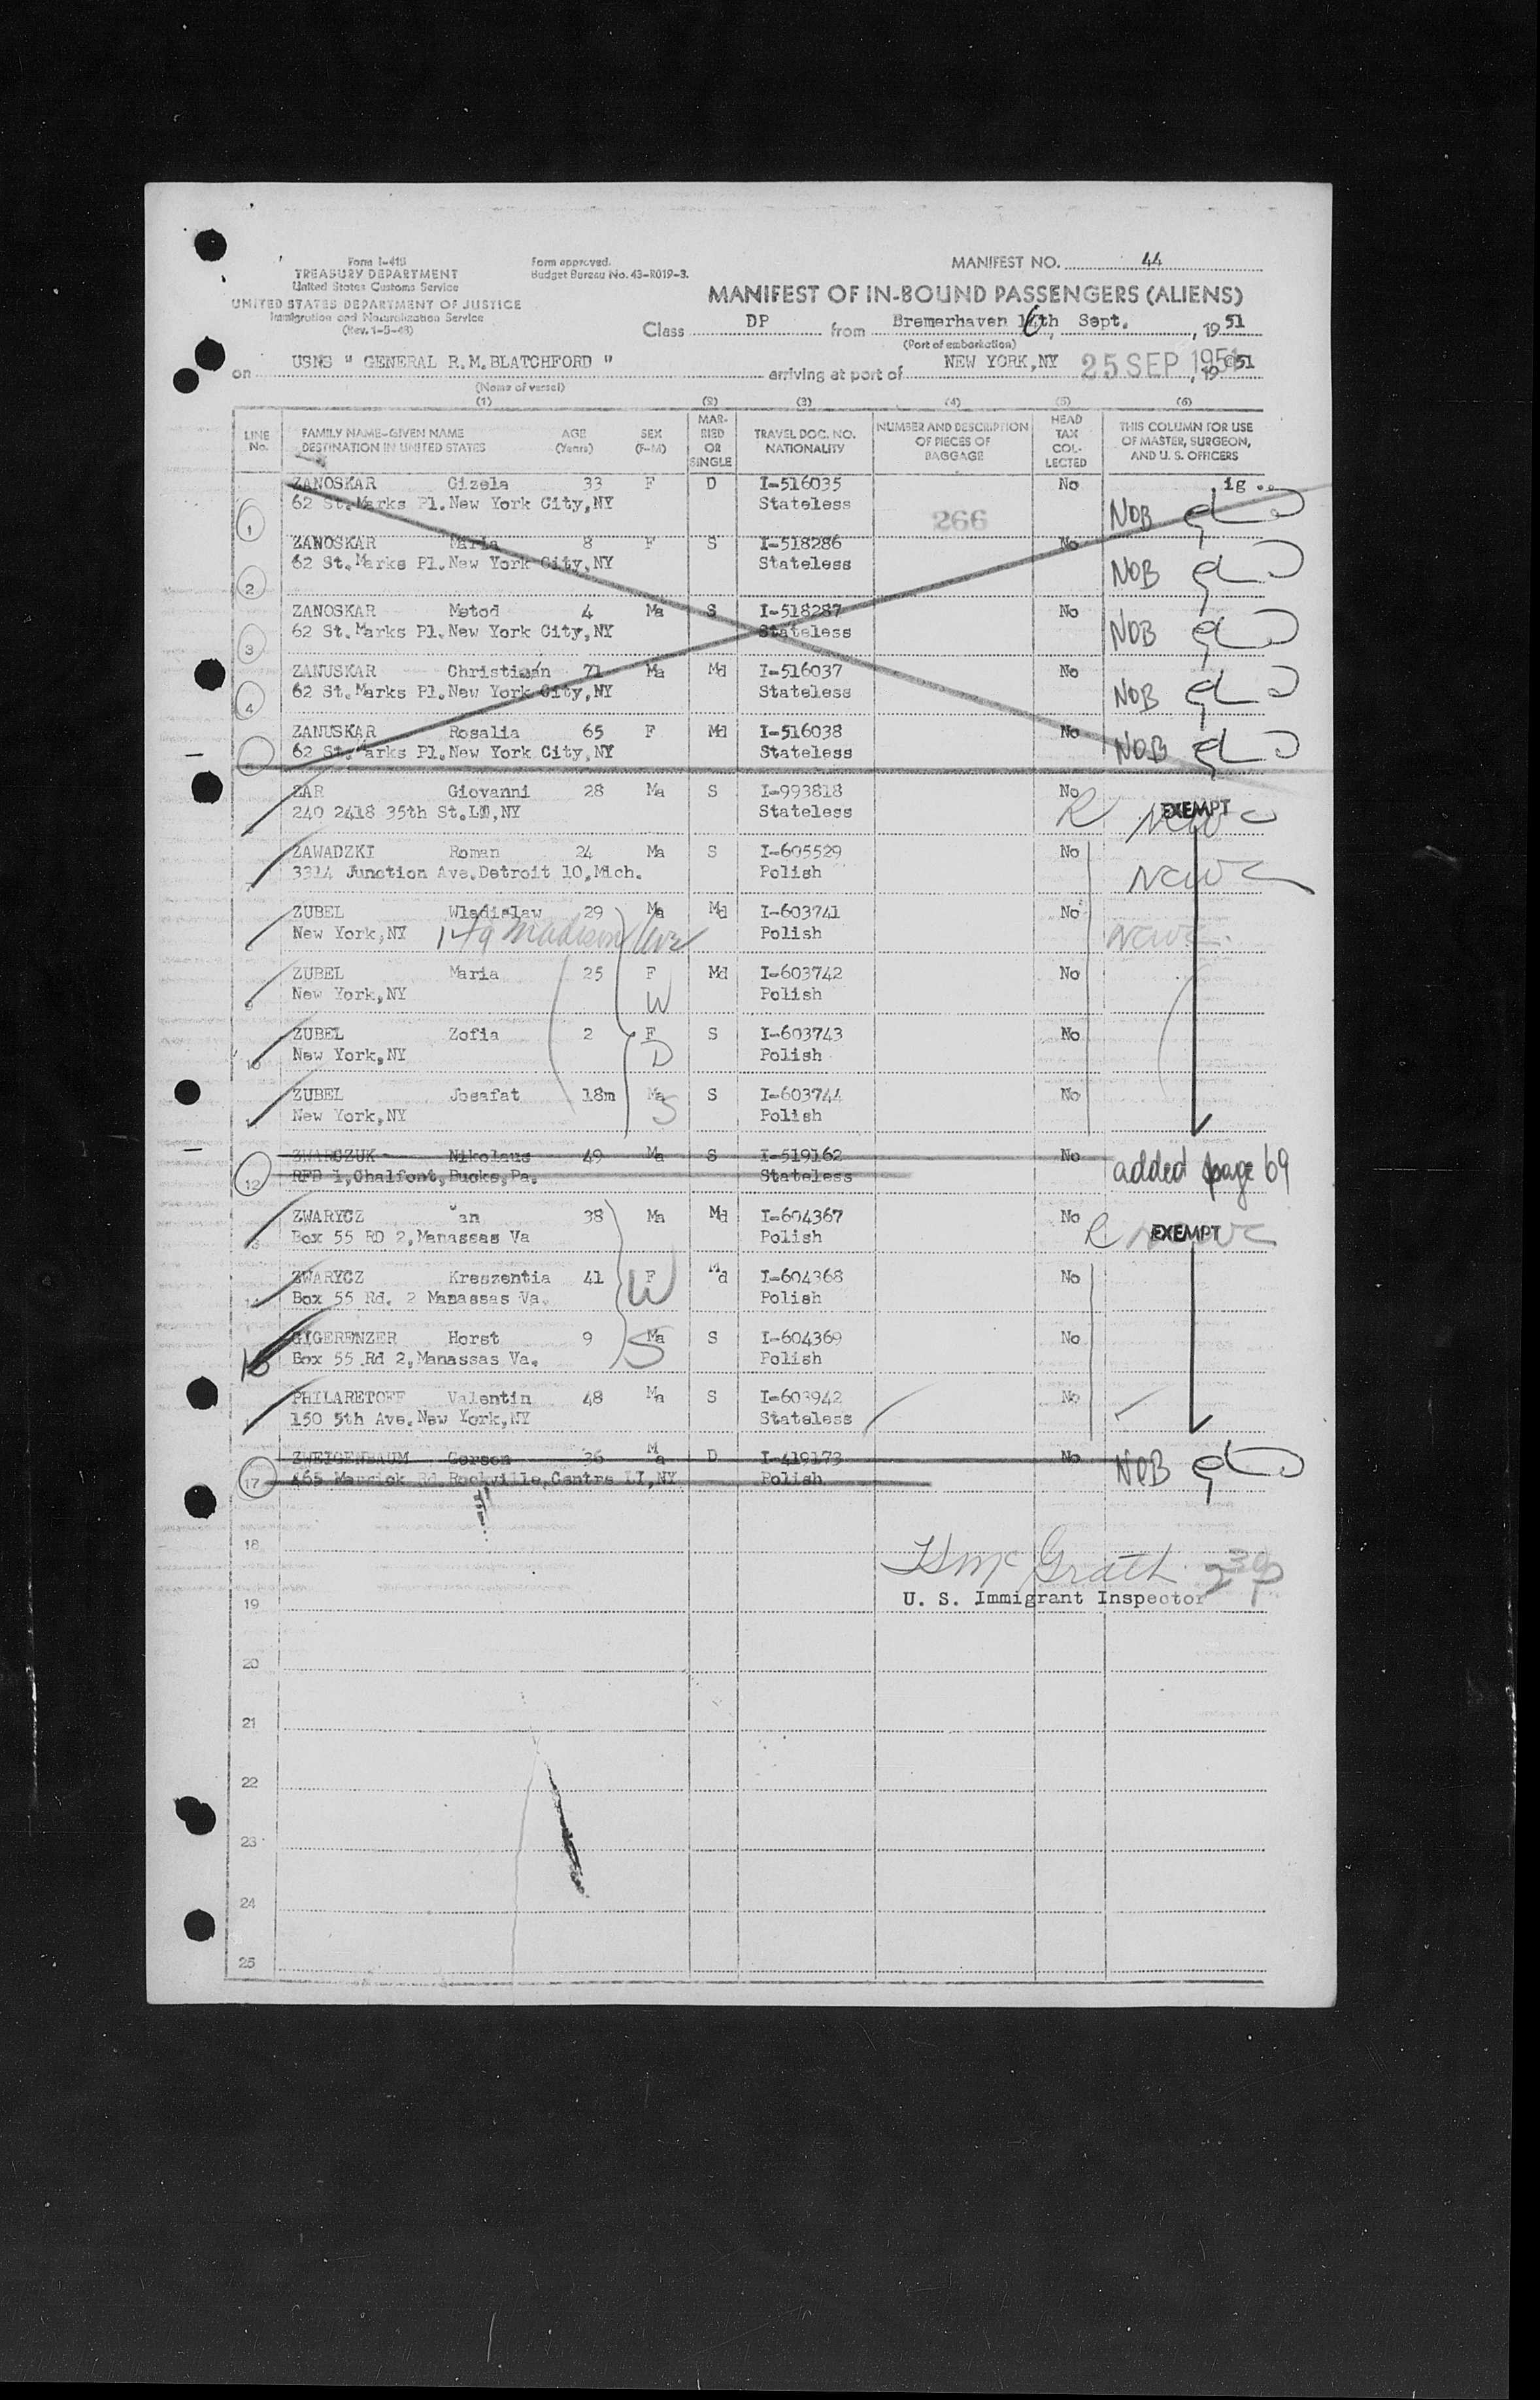 Form I-415
TREASURY DEPARTMENT
United States Customs Service
UNITED STATES DEPARTMENT OF JUSTICE
Immigration and Naturalization Service
(Rev. 1-5-48)
Form approved.
Budget Bureau No. 43-R019-3.
MANIFEST NO. 44
MANIFEST OF IN-BOUND PASSENGERS (ALIENS)
Class DP from Bremerhaven 16th Sept., 1951
(Port of embarkation)
on USNS " GENERAL R.M.BLATCHFORD " arriving at port of NEW YORK,NY 25 SEP 1951, 1951
(Name of vessel)
(1) (2) (3) (4) (5) (6)
LINE No. FAMILY NAME-GIVEN NAME DESTINATION IN UNITED STATES AGE (Years) SEX (F-M) MARRIED OR SINGLE TRAVEL DOC. NO. NATIONALITY NUMBER AND DESCRIPTION OF PIECES OF BAGGAGE HEAD TAX COLLECTED THIS COLUMN FOR USE OF MASTER, SURGEON, AND U. S. OFFICERS
ZANOSKAR Gizela 33 F D I-516035 No ig
1 62 St.Marks Pl.New York City,NY Stateless 266 NOB
ZANOSKAR Maria 8 F S I-518286 No
2 62 St.Marks Pl.New York City,NY Stateless NOB
ZANOSKAR Metod 4 Ma S I-518287 No
3 62 St.Marks Pl.New York City,NY Stateless NOB
ZANUSKAR Christian 71 Ma Md I-516037 No
4 62 St.Marks Pl.New York City,NY Stateless NOB
ZANUSKAR Rosalia 65 F Md I-516038 No
62 St.Marks Pl.New York City,NY Stateless NOB
ZAR Giovanni 28 Ma S I-993818 No
240 2418 35th St.LI,NY Stateless R EXEMPT
ZAWADZKI Roman 24 Ma S I-605529 No
7 3314 Junction Ave.Detroit 10,Mich. Polish
ZUBEL Wladislaw 29 Ma Md I-603741 No
New York,NY 149 Madison Ave Polish
ZUBEL Maria 25 F Md I-603742 No
9 New York,NY W Polish
ZUBEL Zofia 2 F S I-603743 No
10 New York,NY D Polish
ZUBEL Josafat 18m Ma S I-603744 No
New York,NY S Polish
ZWARCZUK Nikolaus 49 Ma S I-519162 No
12 RFD 1,Chalfont,Bucks,Pa. Stateless added page 69
ZWARYCZ Jan 38 Ma Md I-604367 No
Box 55 RD 2,Manassas Va Polish R EXEMPT
ZWARYCZ Kreszentia 41 F Md I-604368 No
14 Box 55 Rd. 2 Manassas Va. W Polish
GIGERENZER Horst 9 Ma S I-604369 No
15 Box 55 Rd 2,Manassas Va. S Polish
PHILARETOFF Valentin 48 Ma S I-603942 No
150 5th Ave.New York,NY Stateless
ZWEIGENBAUM Gerson 36 Ma D I-419173 No
17 465 Merrick Rd.Rockville,Centre LI,NY Polish NOB
18
HMcGrath 2 30 P
19 U. S. Immigrant Inspector
20
21
22
23
24
25